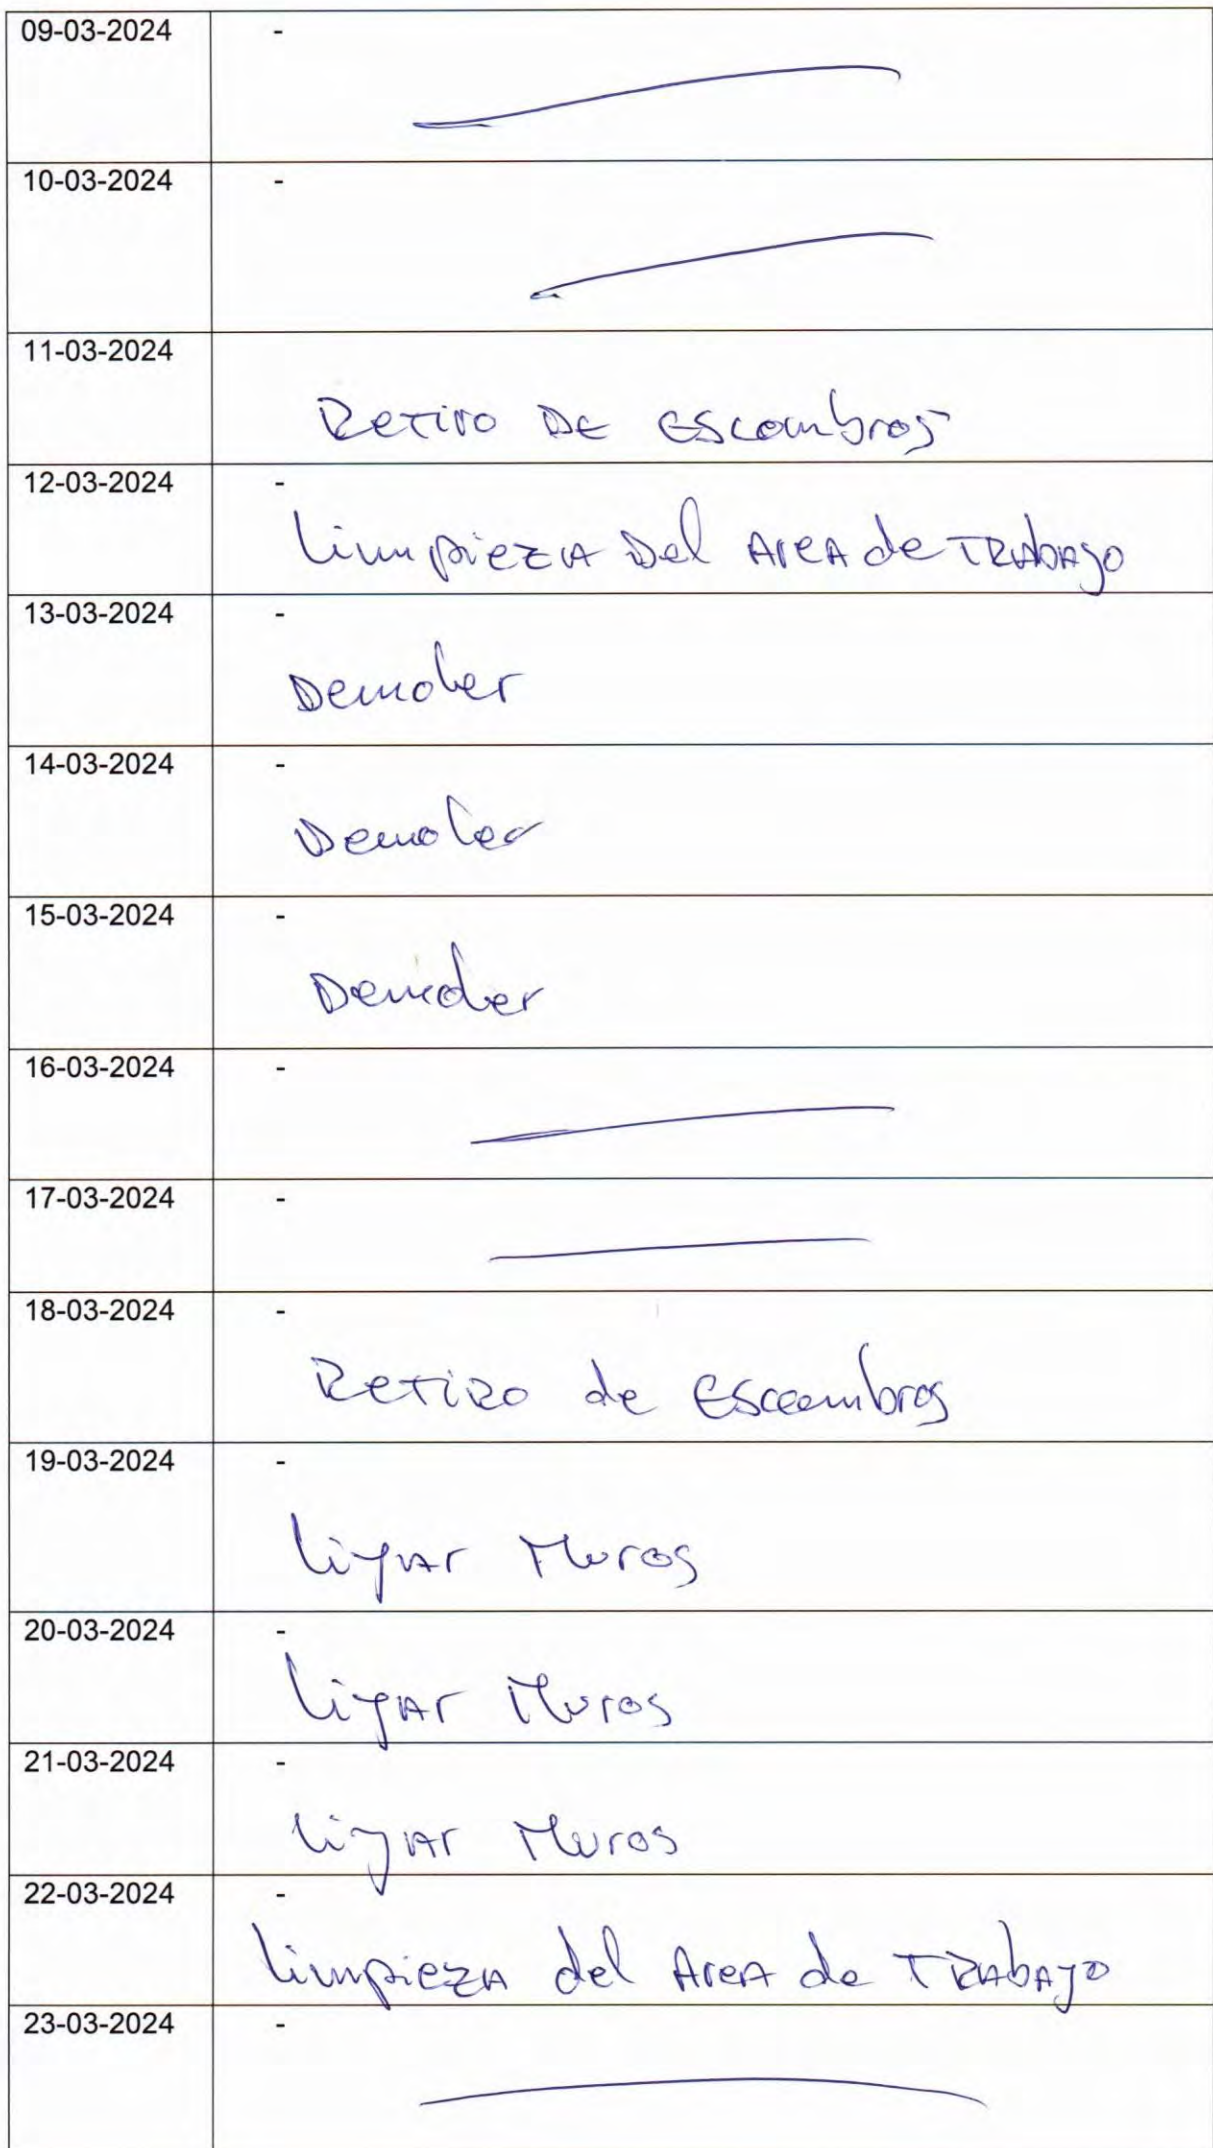 09-03-2024 -
10-03-2024 -
11-03-2024
Retiro De escombros
12-03-2024 -
limpieza Del Area de TRabajo
13-03-2024 -
Demoler
14-03-2024 -
Demoler
15-03-2024 -
Demoler
16-03-2024 -
17-03-2024 -
18-03-2024 -
RetiRo de Escombros
19-03-2024 -
lijar Muros
20-03-2024 -
lijar Muros
21-03-2024 -
lijar Muros
22-03-2024 -
limpieza del Area de TRabajo
23-03-2024 -